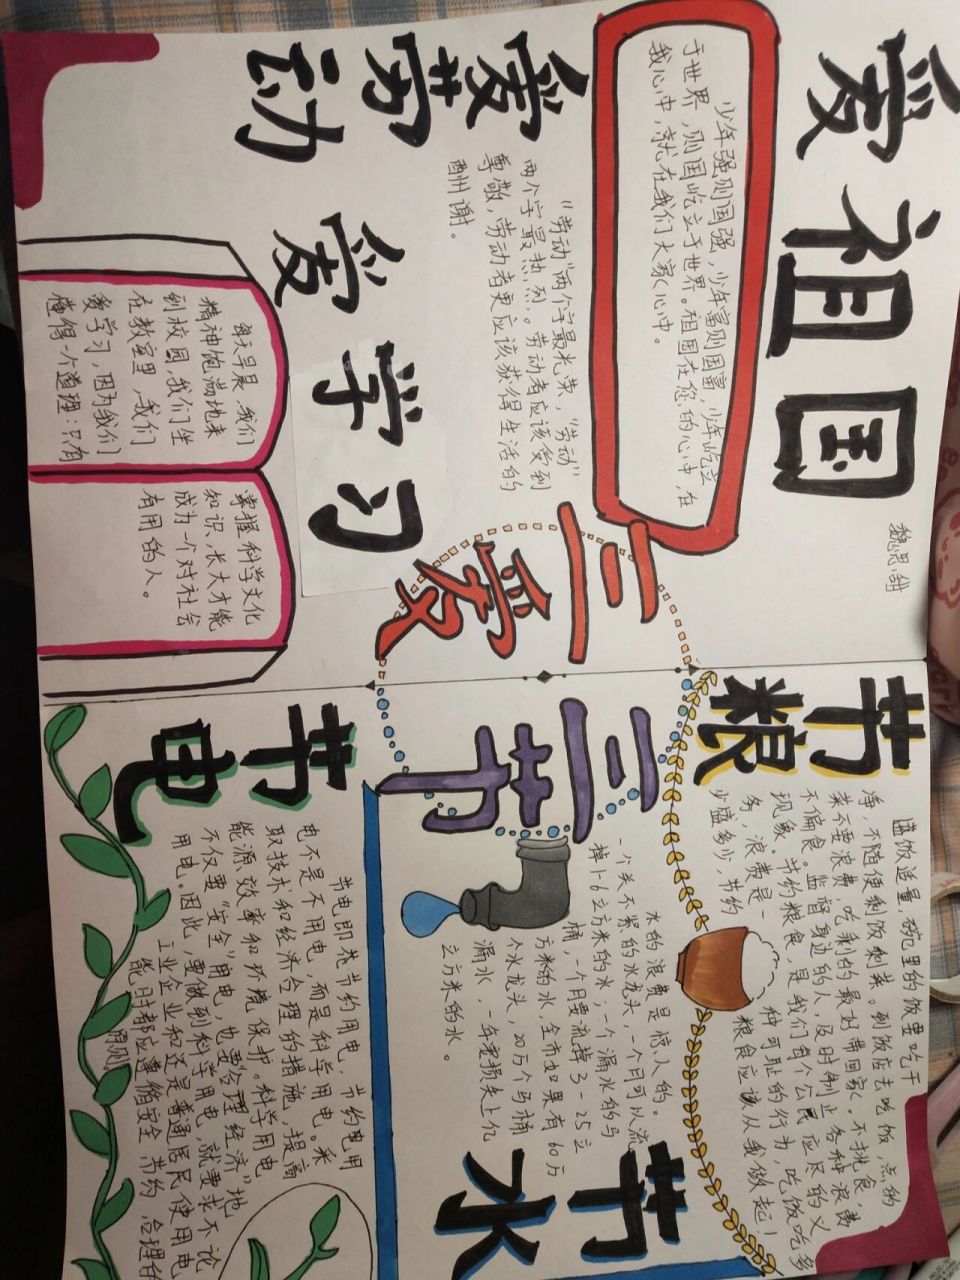 爱祖国
魏思甜
少年强则国强，少年富则国富，少年屹立
于世界，则国屹立于世界。祖国在您的心中，在
我心中，就在我们大家心中。
爱劳动
“劳动”两个字最光荣，“劳动”
两个字最热烈。劳动者应该受到
尊敬，劳动者更应该获得生活的
酬谢。
爱学习
每天早晨，我们
精神饱满地来
到校园，我们坐
在教室里，我们
爱学习，因为我们
懂得一个道理：只有
掌握科学文化
知识、长大才能
成为一个对社会
有用的人。
三爱
三节
节粮
饭适量，碗里的饭要吃干
净，不随便剩饭剩菜。到饭店去吃饭，点的
菜不要浪费，吃剩的最好带回家。不挑食，
不偏食。监督身边的人，及时制止各种浪费
现象。节约粮食，是我们每个公民应尽的义
务，浪费是一种可耻的行为，吃饭吃多
少盛多少，节约粮食应该从我做起！
节水
水的浪费是惊人的。
一个关不紧的水龙头，一个月可以流
掉1-6立方米的水；一个漏水的马
桶，一个月要流掉3-25立
方米的水，全市如果有60万
个水龙头，20万个马桶
漏水，一年要损失上亿
立方米的水。
节电
节电即是节约用电，节约电用
电不是不用电，而是科学用电。采
取技术和经济合理的措施，提高
能源效率和环境保护。科学用电
不仅要“安全”用电，也要“合理经济”地
用电。因此，要做到科学用电，就要求不论
工业企业和还是普通居民使用电
能时都应遵循安全、节约、合理的
原则。